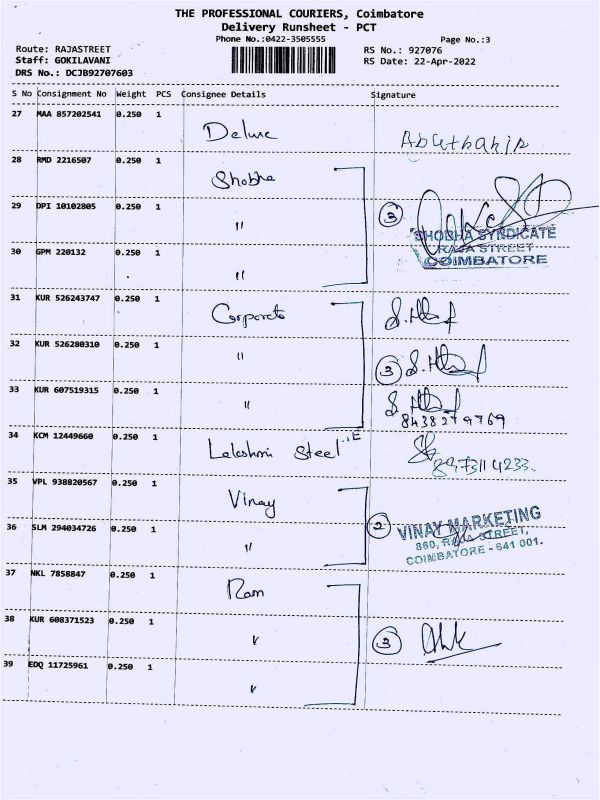 THE PROFESSIONAL COURIERS, Coimbatore
Delivery Runsheet - PCT
Phone No.:0422-3505555
Page No.:3
Route: RAJASTREET
RS No.: 927076
Staff: GOKILAVANI
RS Date: 22-Apr-2022
DRS No.: DCJB92707603
S No Consignment No Weight PCS Consignee Details Signature
27 MAA 857202541 0.250 1 Deluxe Abuthahir
28 RMD 2216507 0.250 1 Shobha
29 DPI 10102805 0.250 1 " 3
SHOBHA SYNDICATE
RAJA STREET
COIMBATORE
30 GPM 220132 0.250 1 "
31 KUR 526243747 0.250 1 Corporate
32 KUR 526280310 0.250 1 " 3
33 KUR 607519315 0.250 1 "
8438279769
34 KCM 12449660 0.250 1 Lakshmi Steel
8973114233.
35 VPL 938820567 0.250 1 Vinay
36 SLM 294034726 0.250 1 " 2
VINAY MARKETING
860, RAJA STREET,
COIMBATORE - 641 001.
37 NKL 7858847 0.250 1 Ram
38 KUR 608371523 0.250 1 " 3
39 EDQ 11725961 0.250 1 "